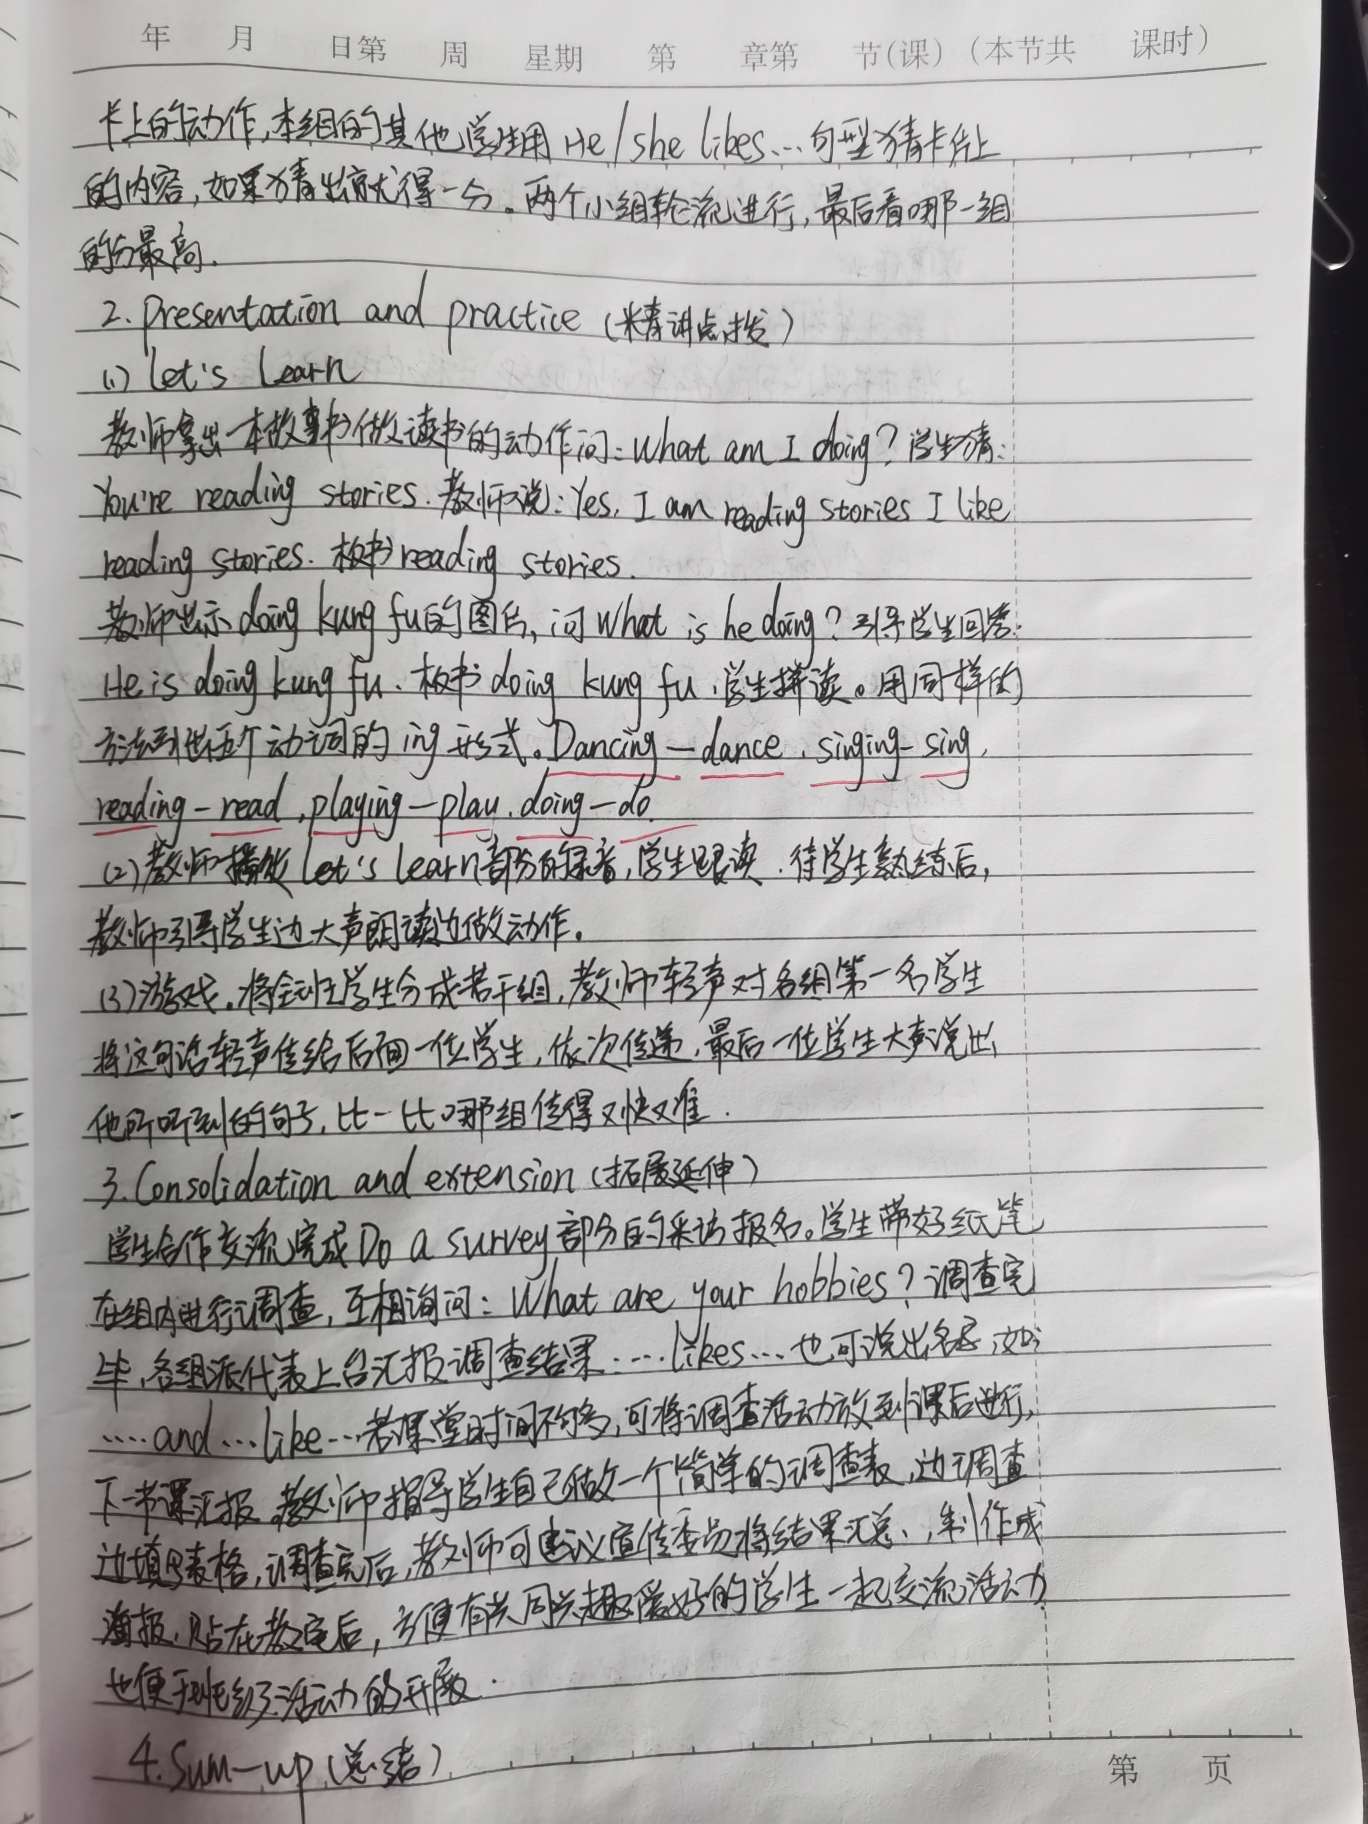 年 月 日第 周 星期 第 章第 节(课)(本节共 课时)
卡上的动作,本组的其他学生用 He/she likes…句型猜卡片上
的内容,如果猜出就得一分。两个小组轮流进行,最后看哪一组
的分最高.
2. Presentation and practice (精讲点拨)
(1) Let's learn
教师拿出一本故事书做读书的动作问: What am I doing? 学生猜:
You're reading stories. 教师说: Yes, I am reading stories I like
reading stories. 板书 reading stories.
教师出示 doing kung fu的图片, 问 What is he doing? 引导学生回答:
He is doing kung fu. 板书 doing kung fu. 学生拼读。用同样的
方法 动词的 ing 形式。Dancing—dance, singing-sing,
reading-read, playing—play, doing—do.
(2)教师播放 Let's learn部分的录音,学生跟读.待学生熟练后,
教师引导学生边大声朗读边做动作。
(3)游戏。将全班学生分成若干组,教师轻声对各组第一名学生
将这句话轻声传给后面一位学生,依次传递,最后一位学生大声说出
他所听到的句子,比一比哪组传得又快又准.
3. Consolidation and extension (拓展延伸)
学生合作交流,完成 Do a survey部分的采访报名。学生带好纸笔
在组内进行调查,互相询问: What are your hobbies? 调查完
毕,各组派代表上台汇报调查结果:…likes…也可说出 如:
……and…like…若课堂时间不够,可将调查活动放到课后进行,
下一节课汇报。教师指导学生自己做一个简单的调查表,边调查
边填写表格,调查完后,教师可建议宣传委员将结果汇总,制作成
海报,贴在教室后,方便有共同兴趣爱好的学生一起交流活动,
也便于班级活动的开展.
4. Sum-up (总结)
第 页